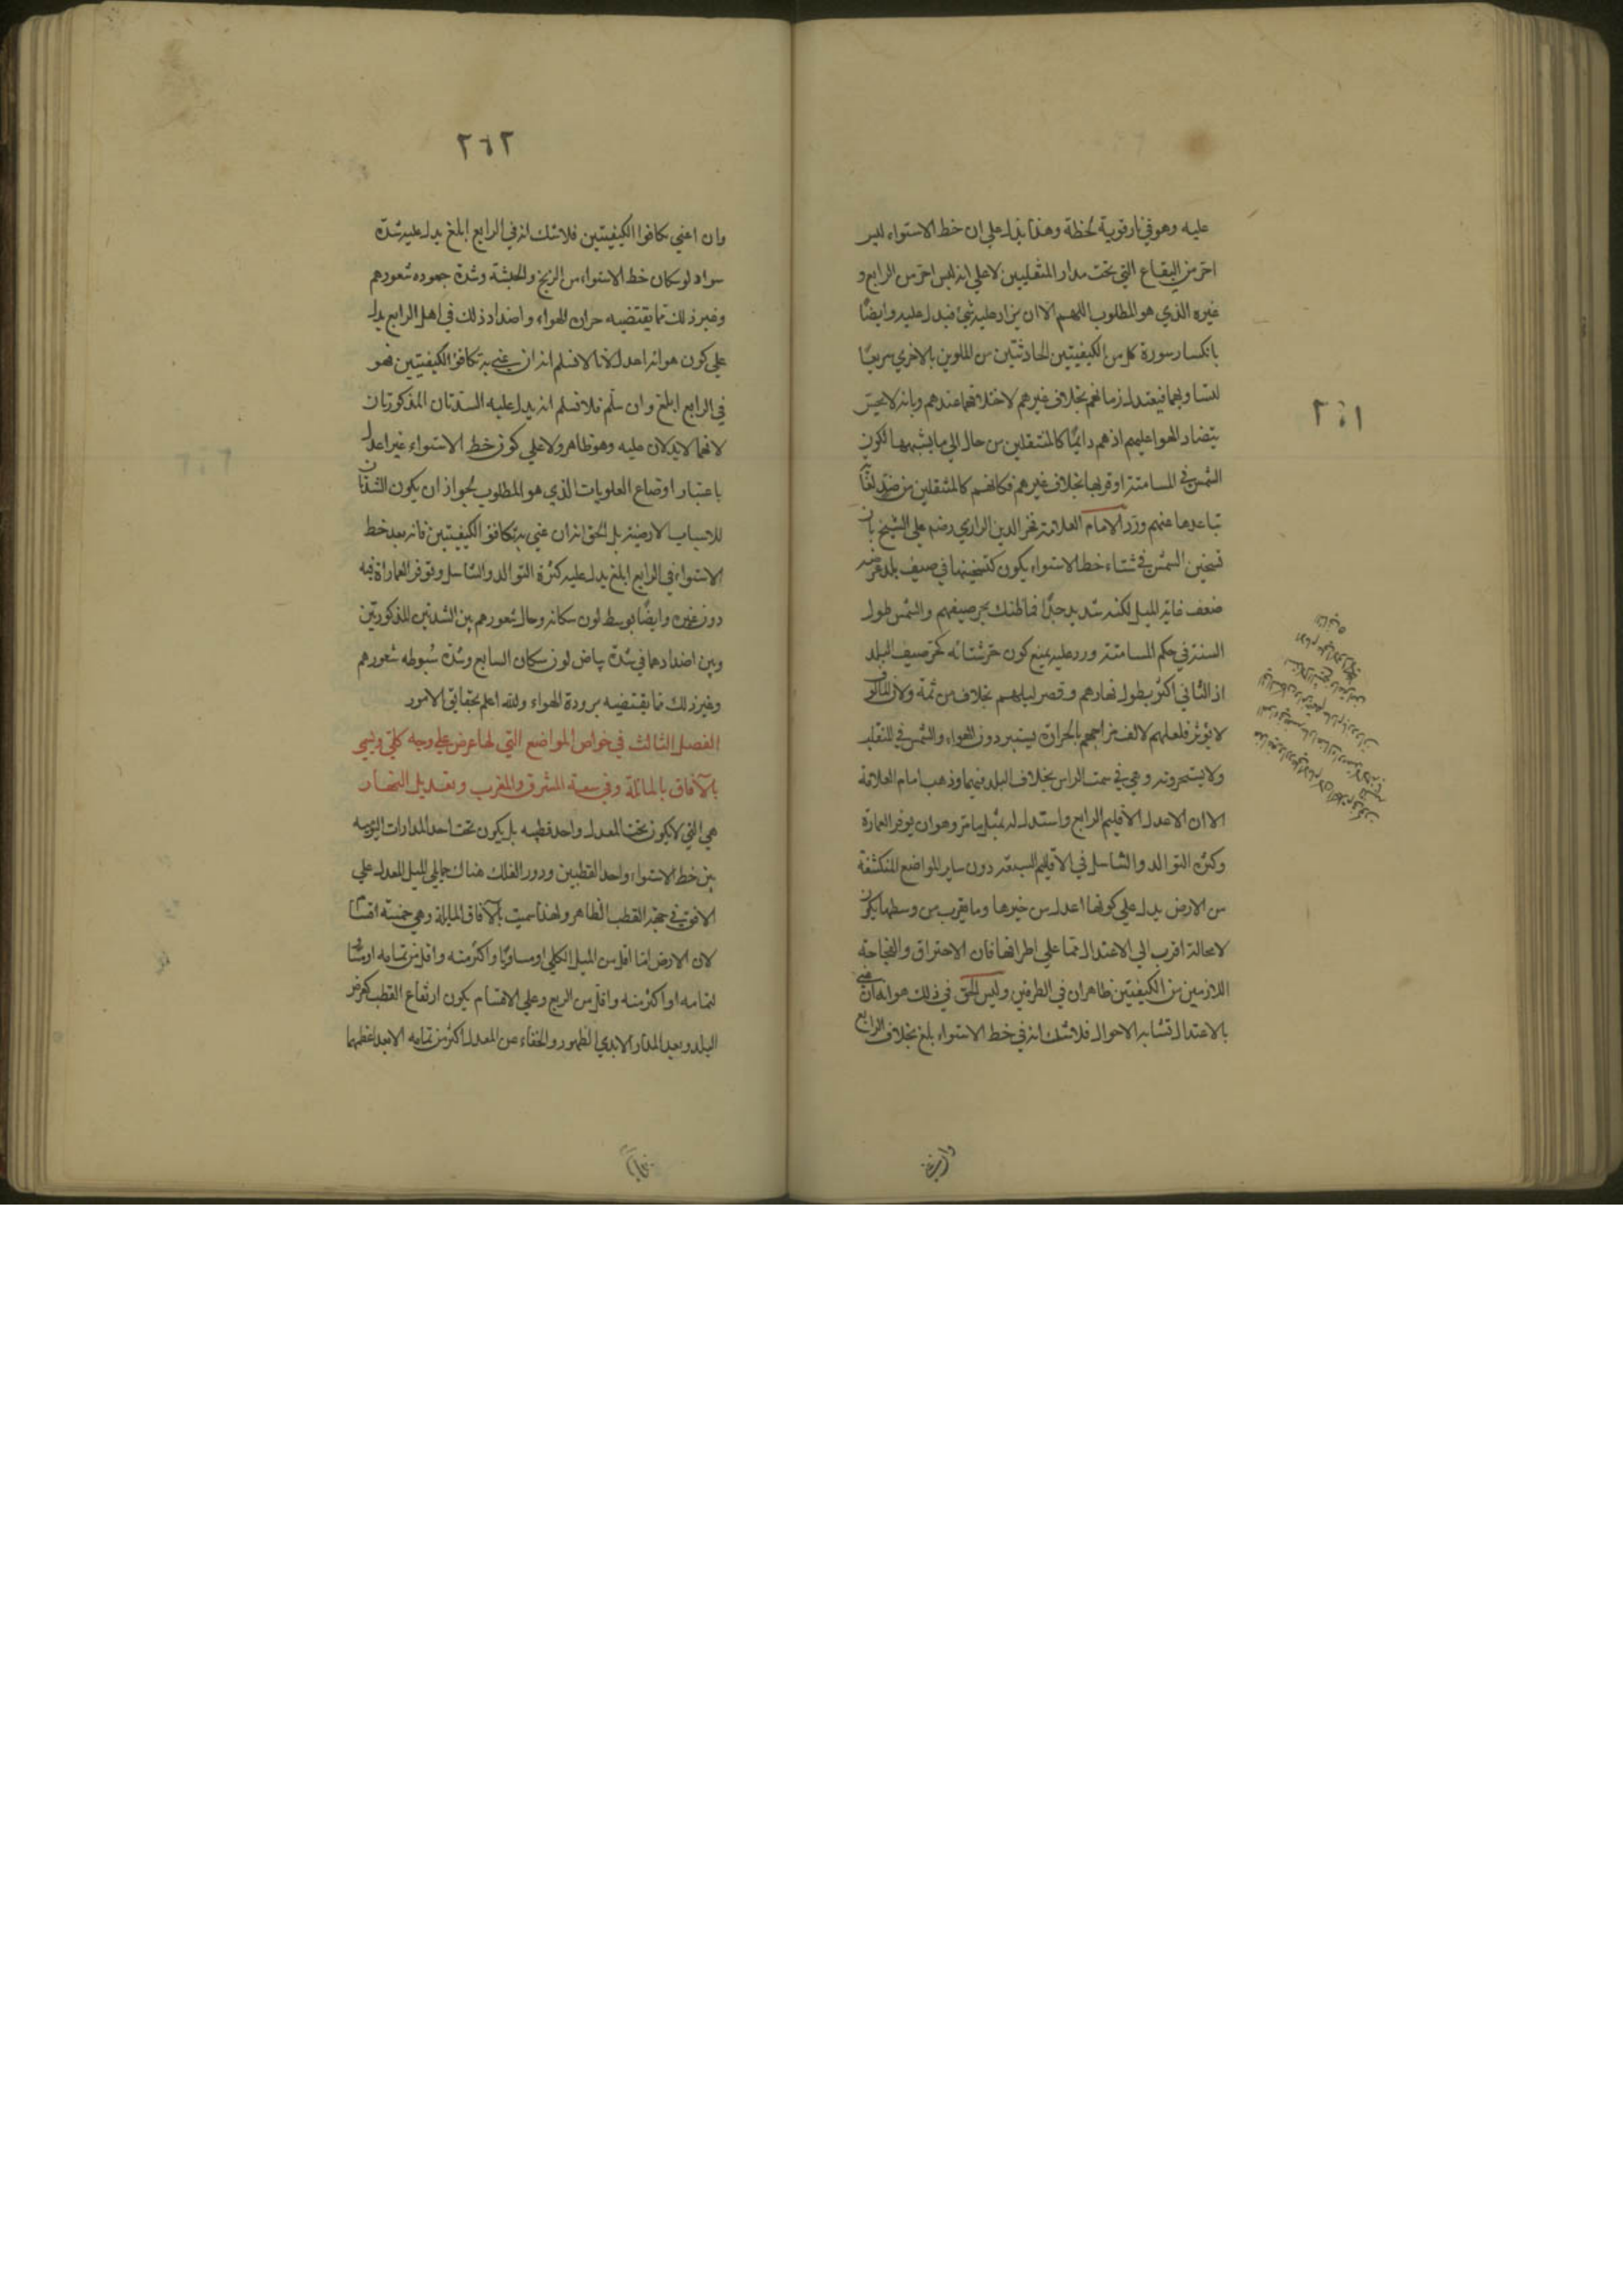 عليه وهو في نار قوية لحظة وهذا يدل علي ان خط الاستواء ليس
احر من البقاع التي تحت مدار المنقلبين لا علي انه ليس احر من الرابع و
غيره الذي هو المطلوب اللهم الا ان يزاد عليه شئ فيدل عليه وايضًا
بانكسار سورة كل من الكيفيتين الحادثتين من الملوين بالاخري سريعًا
لتساويهما فيعتدل زمانهم بخلاف غيرهم لاختلافهما عندهم وبانه لا يحس
بتضاد الهوا عليهم اذ هم دائمًا كالمنتقلين من حال الي ما يشبهها لكون
الشمس في المسامتة او قربها بخلاف غيرهم فكانهم كالمنتقلين من ضد
تباعدها عنهم ورد الامام العلامة فخر الدين الرازي رضه علي الشيخ بان
تسخين الشمس في شتاء خط الاستواء يكون كتسخينها في صيف بلد عرضه
ضعف غاية الميل لكنه شديد جدًا فما ظنك بحر صيفهم والشمس طول
السنة في حكم المسامتة ورد عليه بمنع كون حر شتائه كحر صيف البلد
اذ الثاني اكثر بطول نهارهم وقصر ليلهم بخلاف من ثمة ولان المالوف
لا يؤثر فلعلهم لالف مزاجهم بالحرارة يستبردون الهواء والشمس في المنقلب
ولا يستحرونه وهي في سمت الراس بخلاف البلد فيهما وذهب امام العلامة
الا ان الاعدل الاقليم الرابع واستدل له بمثل ما مر وهو ان يوفر العمارة
وكثرة التوالد والتناسل في الاقليم السبعة دون ساير المواضع المنكشفة
من الارض يدل علي كونها اعدل من غيرها وما يقرب من وسطها يكون
لا محالة اقرب الي الاعتدال مما علي اطرافها فان الاحتراق والفجاجة
اللازمين من الكيفيتين ظاهران في الطرفين وليس الحق في ذلك هو انه ان عني
بالاعتدال تشابه الاحوال فلا شك انه في خط الاستواء بلغ بخلاف الرابع
٢٦١
٢٦٢
وان اعني تكافوا الكيفيتين فلا شك انه في الرابع ابلغ يدل عليه شدة
سواد لو سكان خط الاستواء من الزنج والحبشة وشدة جموده شعورهم
وغير ذلك مما يقتضيه حرارة الهواء واضداد ذلك في اهل الرابع يدل
علي كون هوائه اعدل لانا لا نسلم انه ان عني به تكافؤ الكيفيتين فهو
في الرابع ابلغ وان سلم فلا نسلم انه يدل عليه الشدتان المذكورتان
لانهما لا يدلان عليه وهو ظاهر ولا علي كون خط الاستواء غير اعدل
باعتبار اوضاع العلويات الذي هو المطلوب لجواز ان يكون الشدتان
للاسباب الارضية بل الحق انه ان عني به تكافؤ الكيفيتين فانه بعد خط
الاستواء في الرابع ابلغ يدل عليه كثرة التوالد والتناسل وتوفر العمارة فيه
دون غيره وايضًا توسط لون سكانه وحال شعورهم بين الشدتين المذكورتين
وبين اضدادهما في شدة بياض لون سكان السابع وشدة سبوطه شعورهم
وغير ذلك مما يقتضيه برودة الهواء والله اعلم بحقايق الامور
الفصل الثالث في خواص المواضع التي لها عرض علي وجه كلي وتسمي
بالآفاق بالمائلة وفي سعة المشرق والمغرب وتعديل النهار
هي التي لا يكون تحت المعدل واحد قطبيه بل يكون تحت احد المدارات اليومية
بين خط الاستواء واحد القطبين ودور الفلك هناك حمايلي لميل المعدل علي
الافق في جهة القطب الظاهر ولهذا سميت بالآفاق المايلة وهي خمسة اقسام
لان الارض اما اقل من الميل الكلي او مساويًا او اكثر منه واقل من تمامه او مساويا
لتمامه او اكثر منه واقل من الربع وعلي الاقسام يكون ارتفاع القطب كعرض
البلد وبعد المدار الابدي الظهور والخفاء عن المعدل اكثر من تمامه الا بعد اعظمها